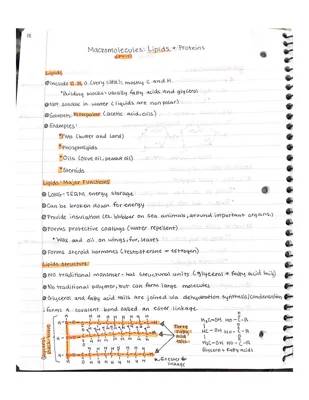 Macromolecules: Lipids + Proteins
Lipids
Include C, H, O (very little); mostly C and H
*Building blocks- usually fatty acids and glycerol
Not soluble in water (lipids are nonpolar)
Solvents: Nonpolar (acetic acid, oils)
Examples:
Fats (butter and lard)
Phospholipids
Oils (olive oil, peanut oil)
Steroids
Lipids- Major Functions
LONG-TERM energy storage
Can be broken down for energy
Provide insulation (ex. blubber on sea animals, around important organs)
Forms protective coatings (water repellent)
*Wax and oil on wings, fur, leaves
Forms steroid hormones (testosterone + estrogen)
Lipids Structure
No traditional monomer- has structural units (glycerol + fatty acid tails)
No traditional polymer, but can form large molecules
Glycerol and fatty acid tails are joined via dehydration synthesis/condensation
forms a covalent bond called an ester linkage.
Glycerol backbone
Three fatty acid tails
Ester linkage
H₂C-OH HO-C-R
HC-OH HO-C-R
H₂C-OH HO-C-R
Glycerol + Fatty acids